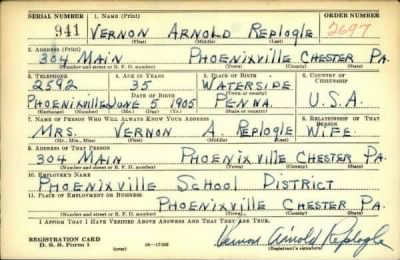 SERIAL NUMBER 1. NAME (Print) ORDER NUMBER
941 VERNON ARNOLD REPLOGLE 2697
(First) (Middle) (Last)
2. ADDRESS (Print)
304 MAIN PHOENIXVILLE CHESTER PA.
(Number and street or R. F. D. number) (Town) (County) (State)
3. TELEPHONE 4. AGE IN YEARS 5. PLACE OF BIRTH 6. COUNTRY OF CITIZENSHIP
2592 35 WATERSIDE
DATE OF BIRTH (Town or county)
PHOENIXVILLE JUNE 5 1905 PENNA. U.S.A.
(Exchange) (Number) (Mo.) (Day) (Yr.) (State or country)
7. NAME OF PERSON WHO WILL ALWAYS KNOW YOUR ADDRESS 8. RELATIONSHIP OF THAT PERSON
MRS. VERNON A. REPLOGLE WIFE
(Mr., Mrs., Miss) (First) (Middle) (Last)
9. ADDRESS OF THAT PERSON
304 MAIN PHOENIXVILLE CHESTER PA.
(Number and street or R. F. D. number) (Town) (County) (State)
10. EMPLOYER'S NAME
PHOENIXVILLE SCHOOL DISTRICT
11. PLACE OF EMPLOYMENT OR BUSINESS
PHOENIXVILLE CHESTER PA.
(Number and street or R. F. D. number) (Town) (County) (State)
I AFFIRM THAT I HAVE VERIFIED ABOVE ANSWERS AND THAT THEY ARE TRUE.
REGISTRATION CARD
D. S. S. Form 1 (over) 16-17105
Vernon Arnold Replogle
(Registrant's signature)